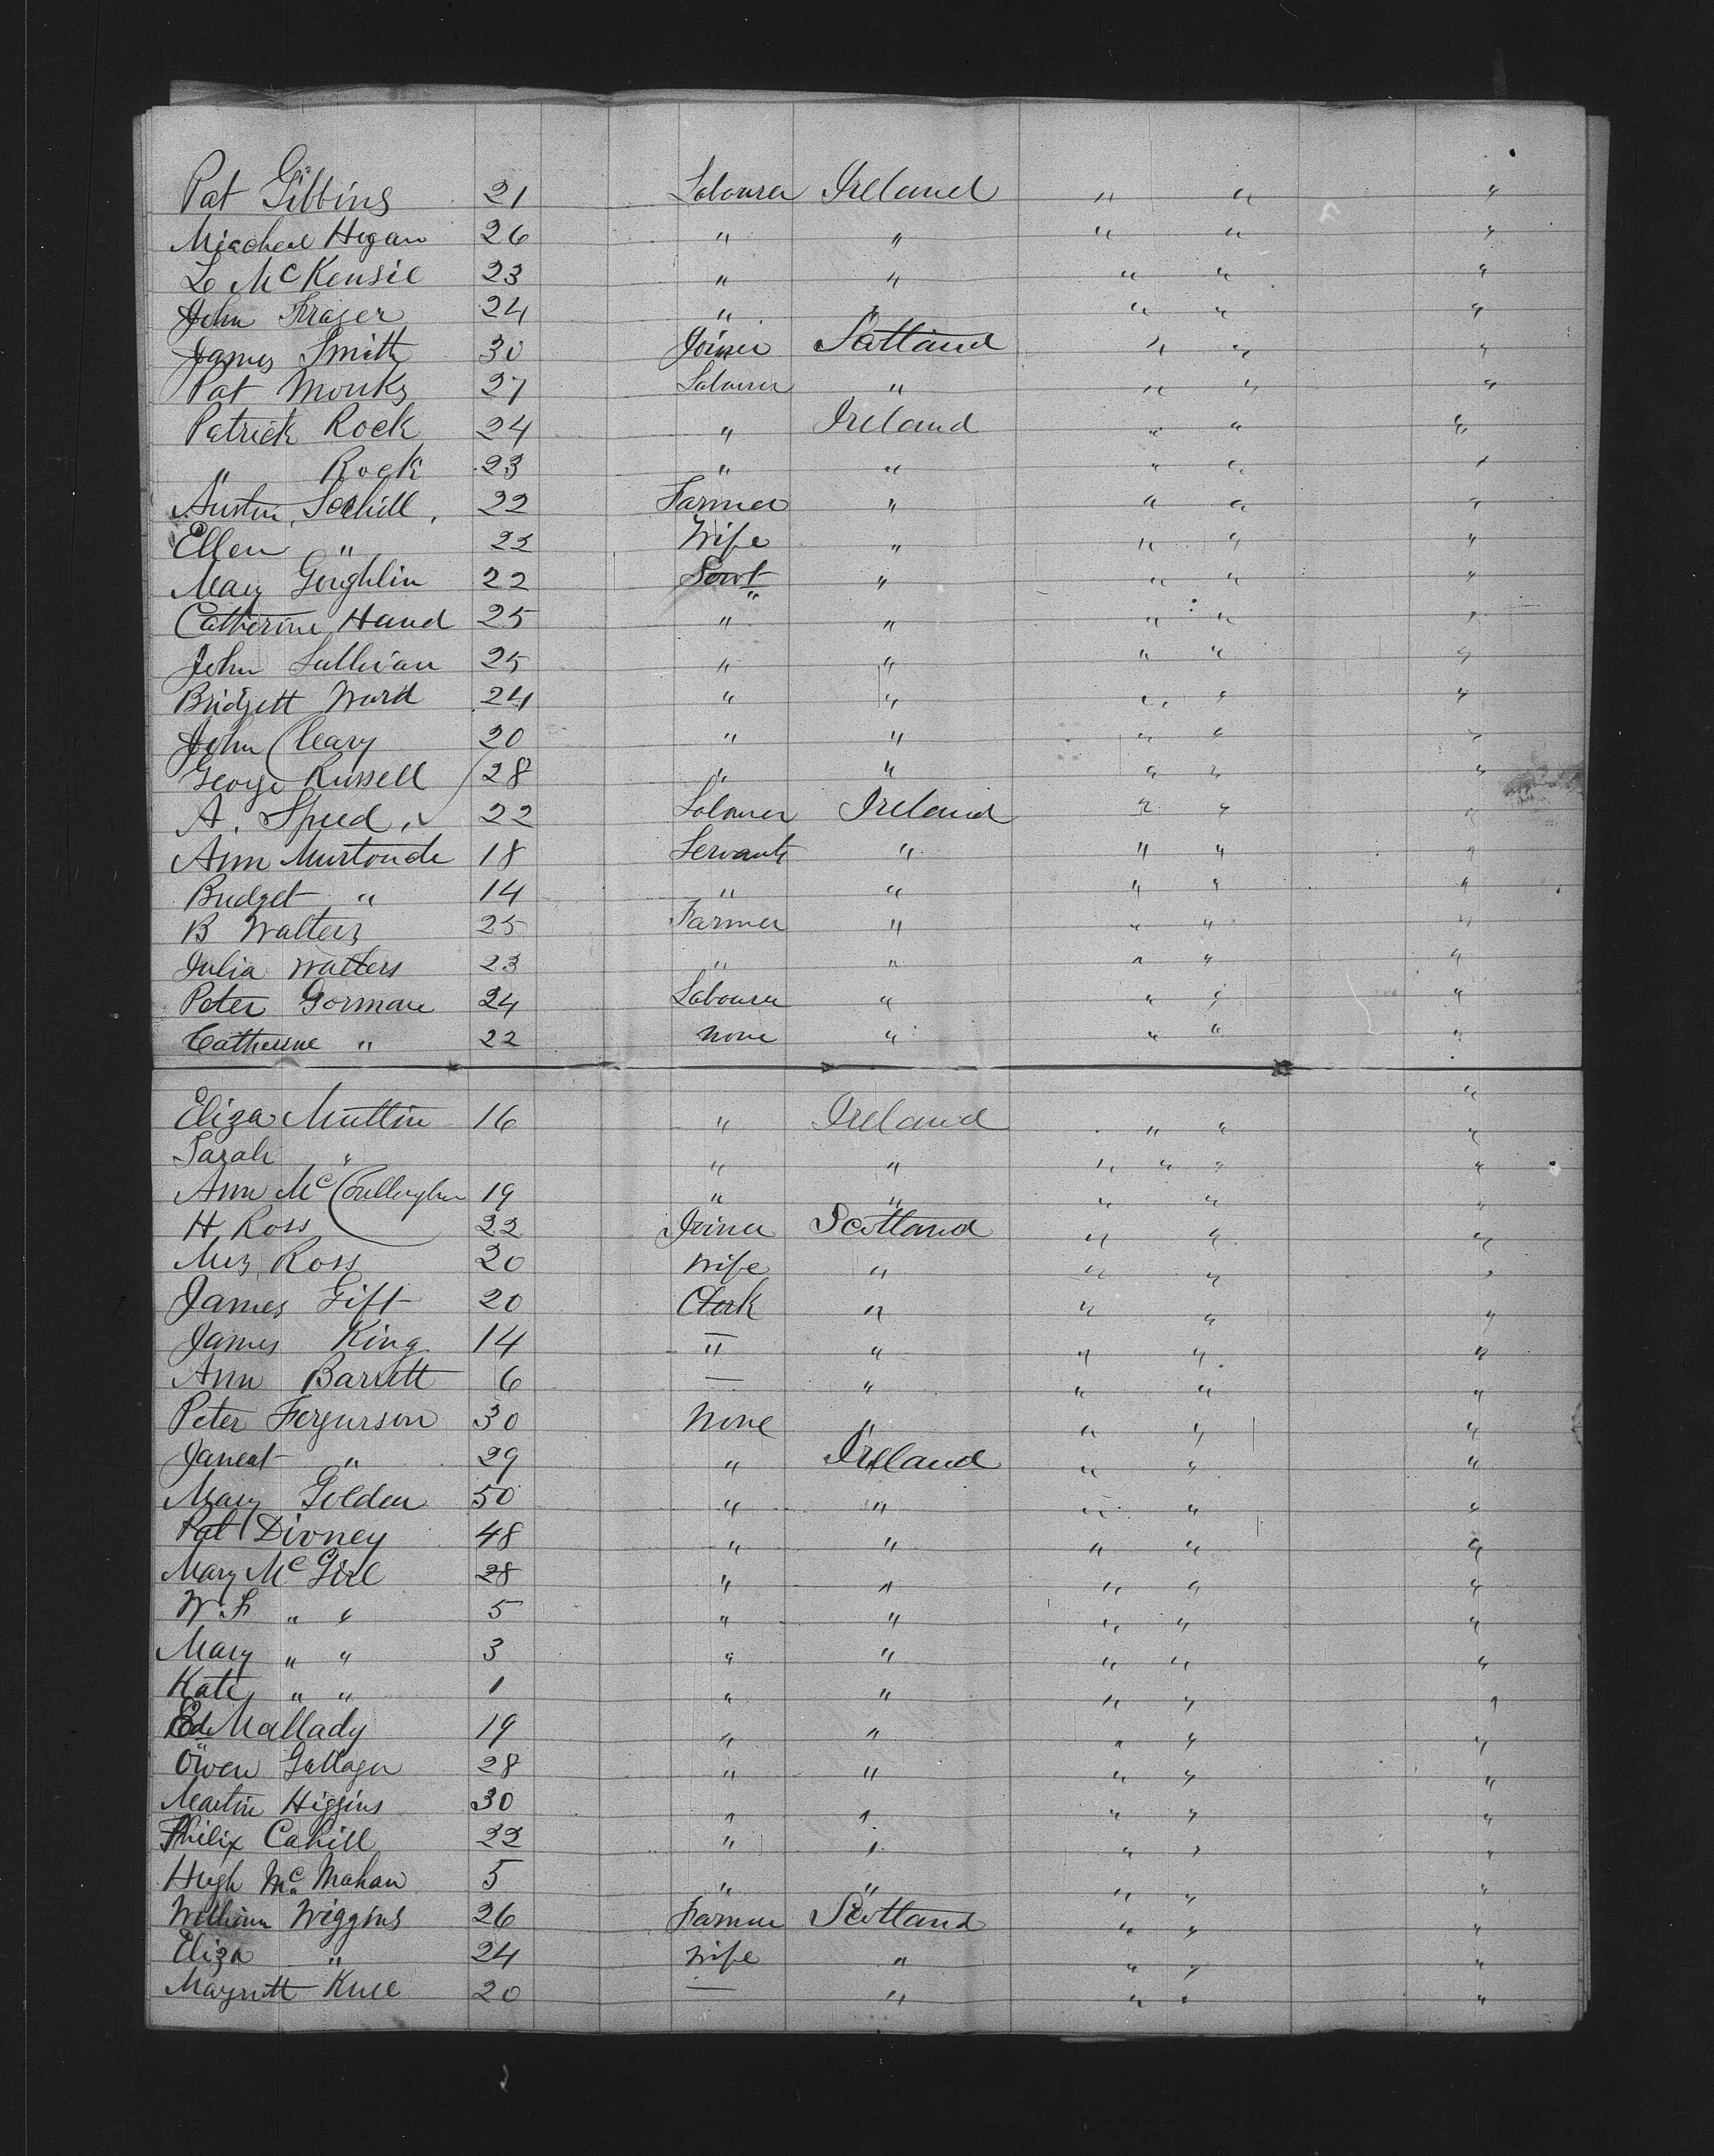 Pat Gibbins 21 Labourer Ireland " " "
Miacheal Hogan 26 " " " " "
L McKensie 23 " " " " "
John Fraser 24 " " " " "
James Smith 30 Joiner Scotland " " "
Pat Monks 27 Labourer " " " "
Patrick Rock 24 " Ireland " " "
" Rock 23 " " " " "
Austin 22 Farmer " " " "
Ellen " 22 Wife " " " "
Mary Goughlin 22 Servt " " " "
Catherine Hand 25 " " " " "
John Sullivan 25 " " " " "
Bridgett Ward 24 " " " " "
John Cleary 20 " " " " "
George Russell 28 " " " " "
A. Speed 22 Labourer Ireland " " "
Ann 18 Servants " " " "
Bridget " 14 " " " " "
B Walters 25 Farmer " " " "
Julia Walters 23 " " " " "
Peter Gorman 24 Labourer " " " "
Catherine " 22 none " " " "
Eliza Muttin 16 " Ireland " " "
Sarah " " " " " " "
Ann Mc 19 " " " " "
H Ross 22 Joiner Scotland " " "
Mrs Ross 20 Wife " " " "
James Gift 20 Clerk " " " "
James King 14 " " " " "
Ann Barrett 6 — " " " "
Peter Fergurson 30 None " " " "
Janeat " 29 " Ireland " " "
Mary Golden 50 " " " " "
Pat Divney 48 " " " " "
Mary McGirl 28 " " " " "
W. " " 5 " " " " "
Mary " " 3 " " " " "
Kate " " 1 " " " " "
Ed Mallady 19 " " " " "
Owen Gallager 28 " " " " "
Martin Higgins 30 " " " " "
Philix Cahill 22 " " " " "
Hugh McMahan 5 " " " " "
William Wiggins 26 Farmer Scotland " " "
Eliza " 24 Wife " " " "
Magrett 20 — " " " "